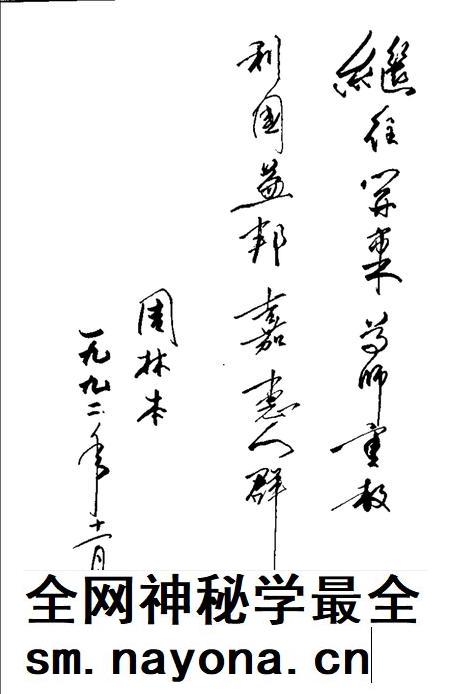 继往开来尊师重教
利国益邦嘉惠人群
周林本
一九九二年十二月
全网神秘学最全
sm.nayona.cn